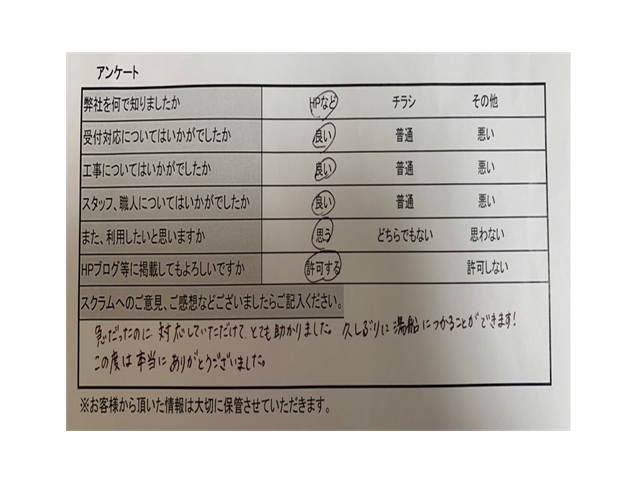 アンケート
弊社を何で知りましたか HPなど チラシ その他
受付対応についてはいかがでしたか 良い 普通 悪い
工事についてはいかがでしたか 良い 普通 悪い
スタッフ、職人についてはいかがでしたか 良い 普通 悪い
また、利用したいと思いますか 思う どちらでもない 思わない
HPブログ等に掲載してもよろしいですか 許可する 許可しない
スクラムへのご意見、ご感想などございましたらご記入ください。
急だったのに対応していただけて、とても助かりました。久しぶりに湯船につかることができます!
この度は本当にありがとうございました。
※お客様から頂いた情報は大切に保管させていただきます。